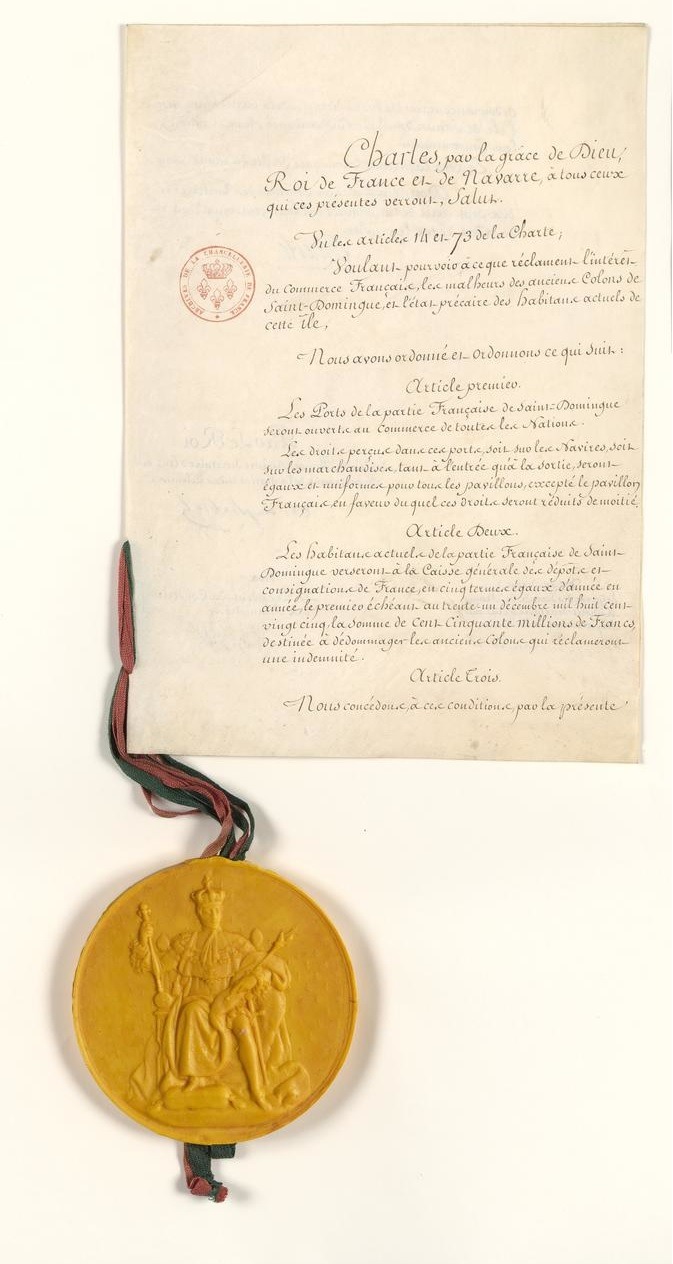 Charles, par la grâce de Dieu,
Roi de France et de Navarre, à tous ceux
qui ces présentes verront, Salut.
Vu les articles 14 et 73 de la Charte;
Voulant pourvoir à ce que réclament l'intérêt
du Commerce Français, les malheurs des anciens Colons de
Saint-Domingue, et l'état précaire des habitans actuels de
cette Île,
Nous avons ordonné et ordonnons ce qui suit:
Article premier.
Les Ports de la partie Française de Saint-Domingue
seront ouverts au Commerce de toutes les Nations.
Les droits perçus dans ces ports, soit sur les Navires, soit
sur les marchandises, tant à l'entrée qu'à la sortie, seront
égaux et uniformes pour tous les pavillons, excepté le pavillon
Français, en faveur du quel ces droits seront réduits de moitié.
Article Deux.
Les habitans actuels de la partie Française de Saint-
Domingue verseront à la Caisse générale des dépôts et
consignations de France, en cinq termes égaux d'année en
année, le premier échéant au trente-un décembre mil huit cent
vingt cinq, la somme de Cent Cinquante millions de Francs,
destinée à dédommager les anciens Colons qui réclameront
une indemnité.
Article Trois.
Nous concédons, à ces conditions, par la présente
ARCHIVES DE LA CHANCELLERIE DE FRANCE